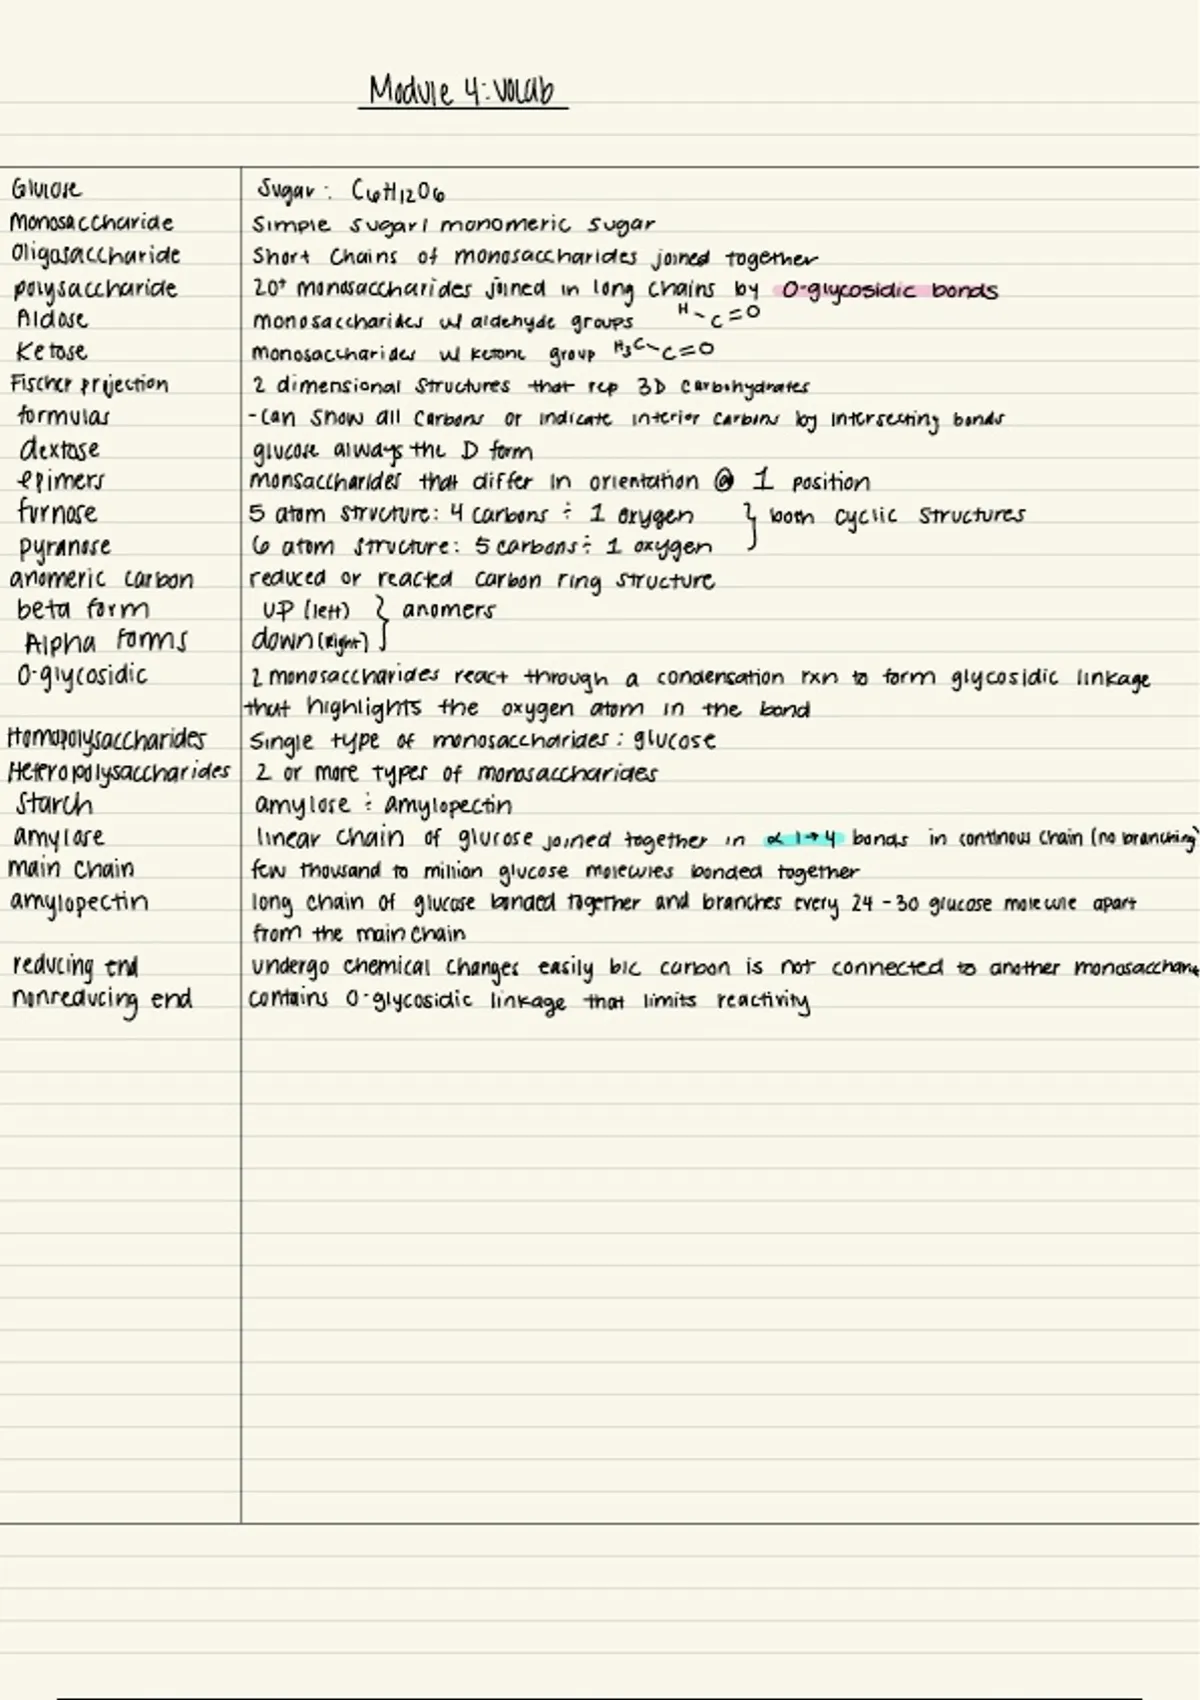 Module 4: vocab
Glucose Sugar: C6H12O6
Monosaccharide Simple sugar/ monomeric sugar
Oligosaccharide Short Chains of monosaccharides joined together
polysaccharide 20+ monosaccharides joined in long chains by O-glycosidic bonds
Aldose monosaccharides w/ aldehyde groups H-C=O
Ketose monosaccharides w/ ketone group H3C-C=O
Fischer projection 2 dimensional structures that rep 3D carbohydrates
formulas -can show all carbons or indicate interior carbons by intersecting bonds
dextose glucose always the D form
epimers monsaccharides that differ in orientation @ 1 position
furnose 5 atom structure: 4 carbons ÷ 1 oxygen } both cyclic structures
pyranose 6 atom structure: 5 carbons ÷ 1 oxygen
anomeric carbon reduced or reacted carbon ring structure
beta form UP (left) } anomers
Alpha forms down (Right)
O-glycosidic 2 monosaccharides react through a condensation rxn to form glycosidic linkage
that highlights the oxygen atom in the bond
Homopolysaccharides Single type of monosaccharides: glucose
Heteropolysaccharides 2 or more types of monosaccharides
Starch amylose ÷ amylopectin
amylose linear chain of glucose joined together in α 1→4 bonds in continous chain (no branching)
main chain few thousand to million glucose molecules bonded together
amylopectin long chain of glucose bonded together and branches every 24-30 glucose molecule apart
from the main chain
reducing end undergo chemical changes easily b/c carbon is not connected to another monosacchari
nonreducing end contains O-glycosidic linkage that limits reactivity